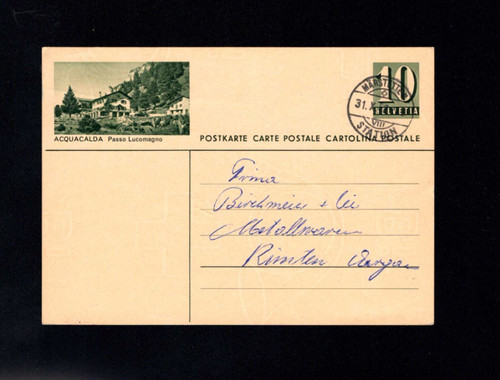 ACQUACALDA Passo Lucomagno
10
HELVETIA
31.X
VIII
STATION
POSTKARTE CARTE POSTALE CARTOLINA POSTALE
Firma
Birchmeier + Cie
Metallwaren
Künten Aargau